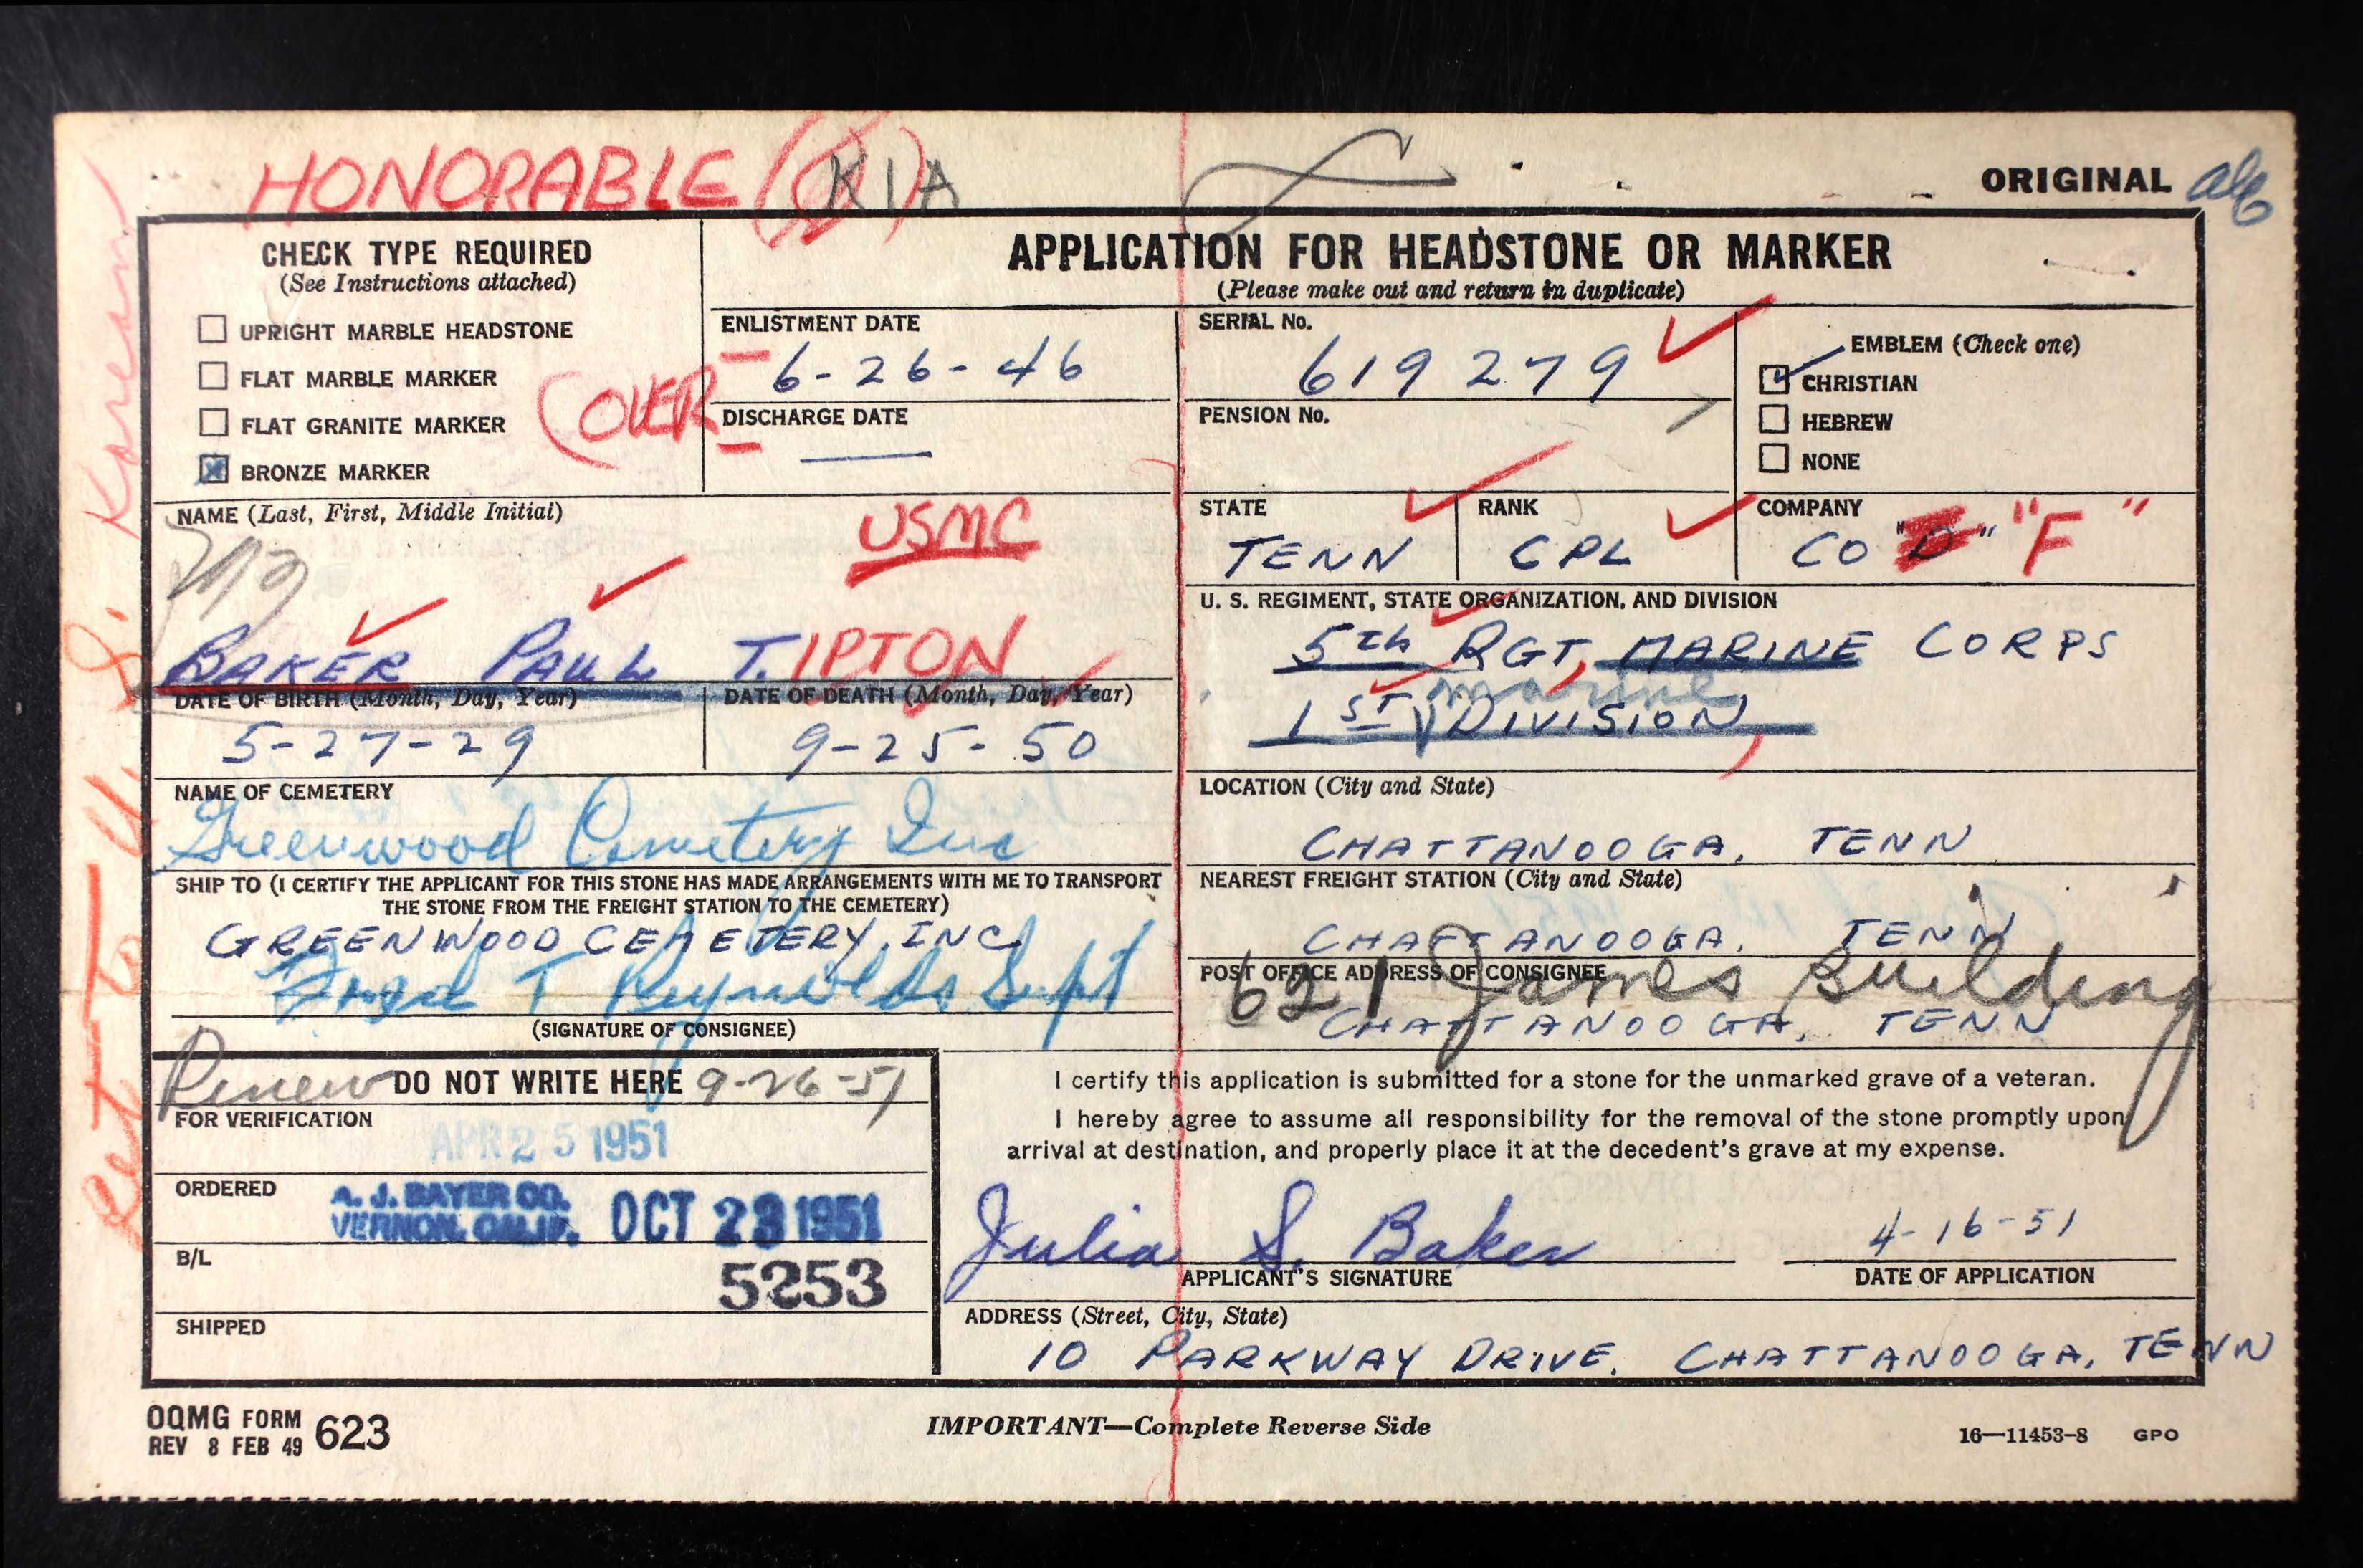 HONORABLE (KIA
ORIGINAL
Ret to U. S. Korean
CHECK TYPE REQUIRED
(See Instructions attached)
UPRIGHT MARBLE HEADSTONE
FLAT MARBLE MARKER
FLAT GRANITE MARKER
BRONZE MARKER
(OVER
APPLICATION FOR HEADSTONE OR MARKER
(Please make out and return in duplicate)
ENLISTMENT DATE
6-26-46
DISCHARGE DATE
SERIAL No.
619279
PENSION No.
EMBLEM (Check one)
CHRISTIAN
HEBREW
NONE
NAME (Last, First, Middle Initial)
USMC
BAKER PAUL T. IPTON
STATE
TENN
RANK
CPL
COMPANY
CO "D" "F"
U. S. REGIMENT, STATE ORGANIZATION, AND DIVISION
5th RGT, MARINE CORPS
marine
1ST DIVISION,
DATE OF BIRTH (Month, Day, Year)
5-27-29
DATE OF DEATH (Month, Day, Year)
9-25-50
NAME OF CEMETERY
Greenwood Cemetery Inc
LOCATION (City and State)
CHATTANOOGA, TENN
SHIP TO (I CERTIFY THE APPLICANT FOR THIS STONE HAS MADE ARRANGEMENTS WITH ME TO TRANSPORT
THE STONE FROM THE FREIGHT STATION TO THE CEMETERY)
GREENWOOD CEMETERY, INC
T Reynolds Supt
(SIGNATURE OF CONSIGNEE)
NEAREST FREIGHT STATION (City and State)
CHATTANOOGA, TENN
POST OFFICE ADDRESS OF CONSIGNEE
621 James Building
CHATTANOOGA, TENN
Renew DO NOT WRITE HERE 9-26-51
FOR VERIFICATION
APR 25 1951
ORDERED
A. J. BAYER CO.
VERNON, CALIF. OCT 23 1951
B/L
5253
SHIPPED
I certify this application is submitted for a stone for the unmarked grave of a veteran.
I hereby agree to assume all responsibility for the removal of the stone promptly upon
arrival at destination, and properly place it at the decedent's grave at my expense.
Julia S. Baker
4-16-51
APPLICANT'S SIGNATURE
DATE OF APPLICATION
ADDRESS (Street, City, State)
10 PARKWAY DRIVE, CHATTANOOGA, TENN
OQMG FORM 623
REV 8 FEB 49
IMPORTANT—Complete Reverse Side
16—11453-8 GPO